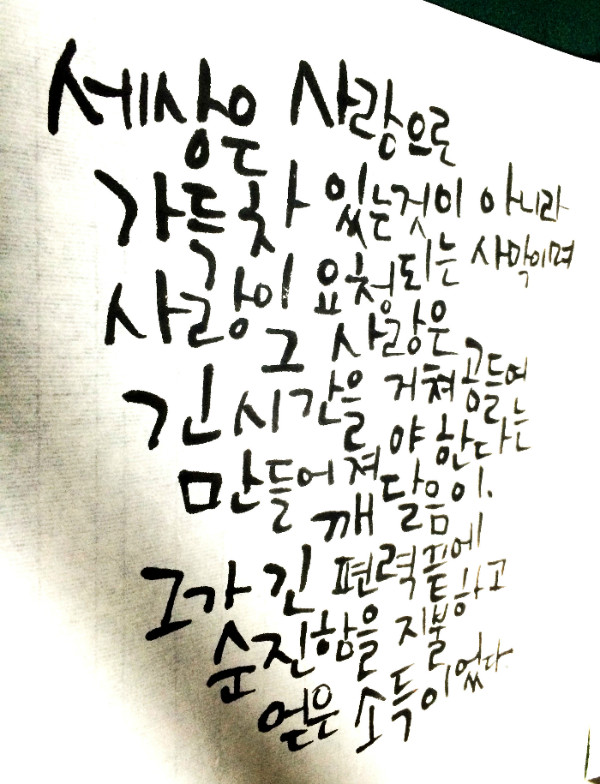 세상은 사랑으로
가득차 있는것이 아니라
사랑이 요청되는 사막이며
그 사랑은
긴 시간을 거쳐 공들여
만들어져야 한다는
깨달음이.
그가 긴 편력 끝에
순진함을 지불하고
얻은 소득이었다.